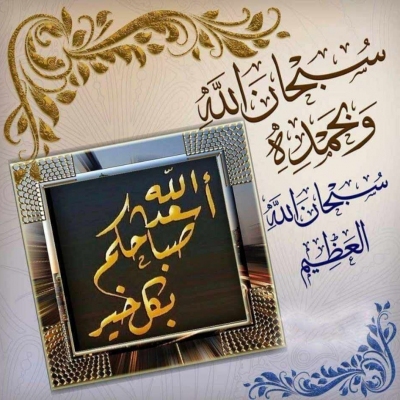 سُبْحَانَ اللَّهِ
وَبِحَمْدِهِ
سُبْحَانَ اللَّهِ
العَظِيمِ
أسعد الله
صباحكم
بكل خير